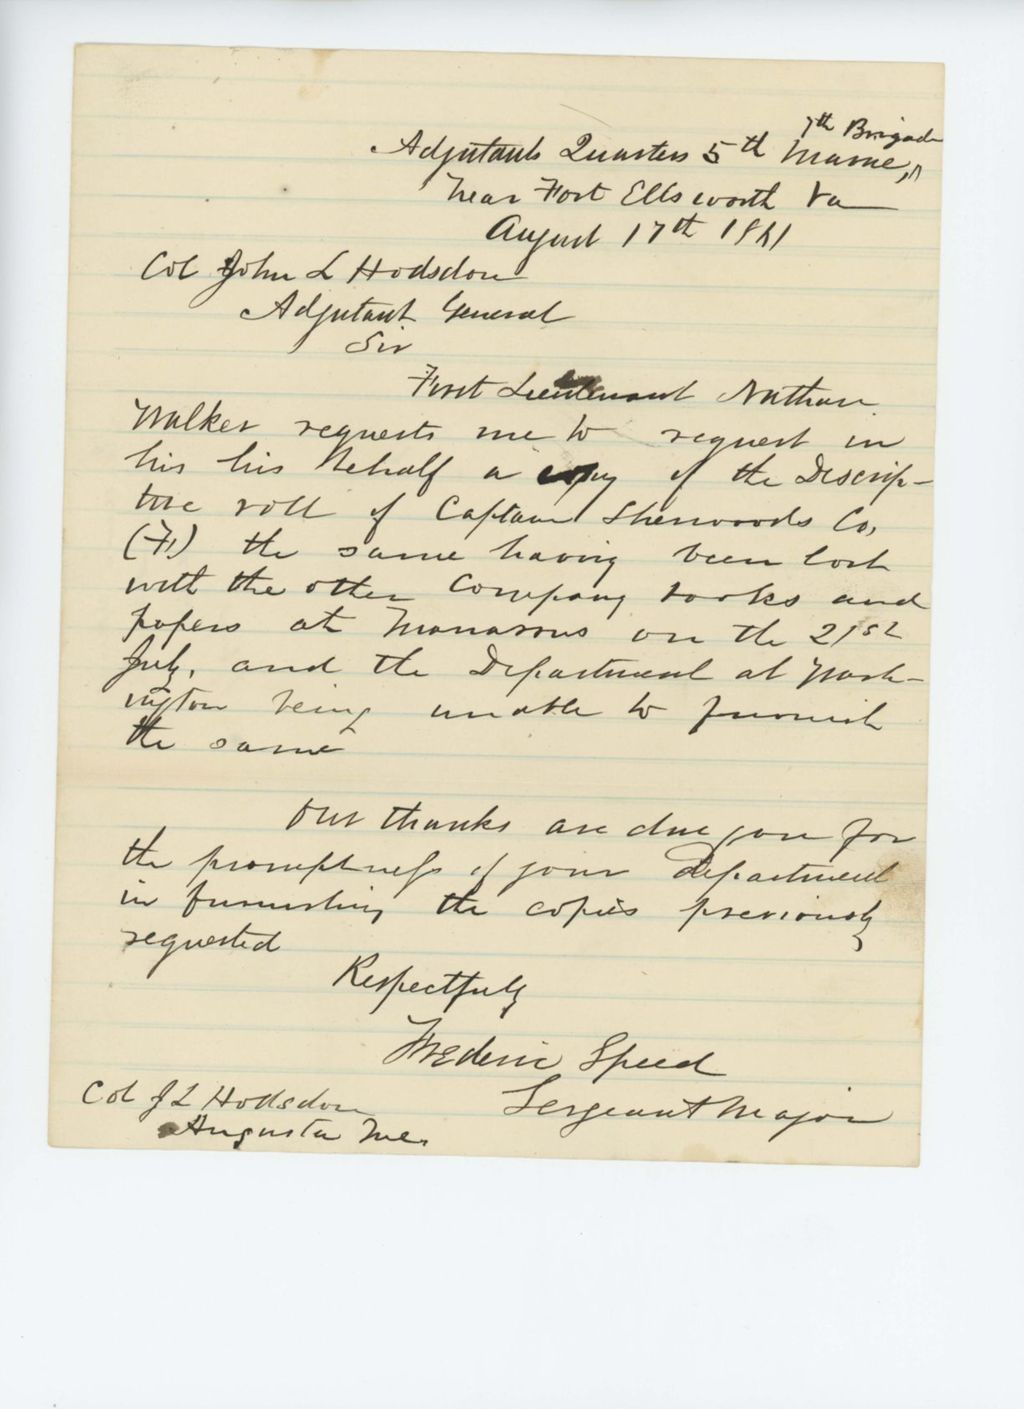 7th Brigade
Adjutants Quarters 5th Maine,
Near Fort Ellsworth Va
August 17th 1861
Col John L Hodsdon
Adjutant General
Sir
First Lieutenant Nathan
Walker requests me to request in
his his behalf a copy of the Descrip-
tive roll of Captain Sherwoods Co,
(F.) the same having been lost
with the other Company books and
papers at Manassas on the 21st
July, and the Department at Wash-
ington being unable to furnish
the same
Our thanks are due you for
the promptness of your department
in furnishing the copies previously
requested
Respectfully
Frederic Speed
Sergeant Major
Col J L Hodsdon
Augusta Me.